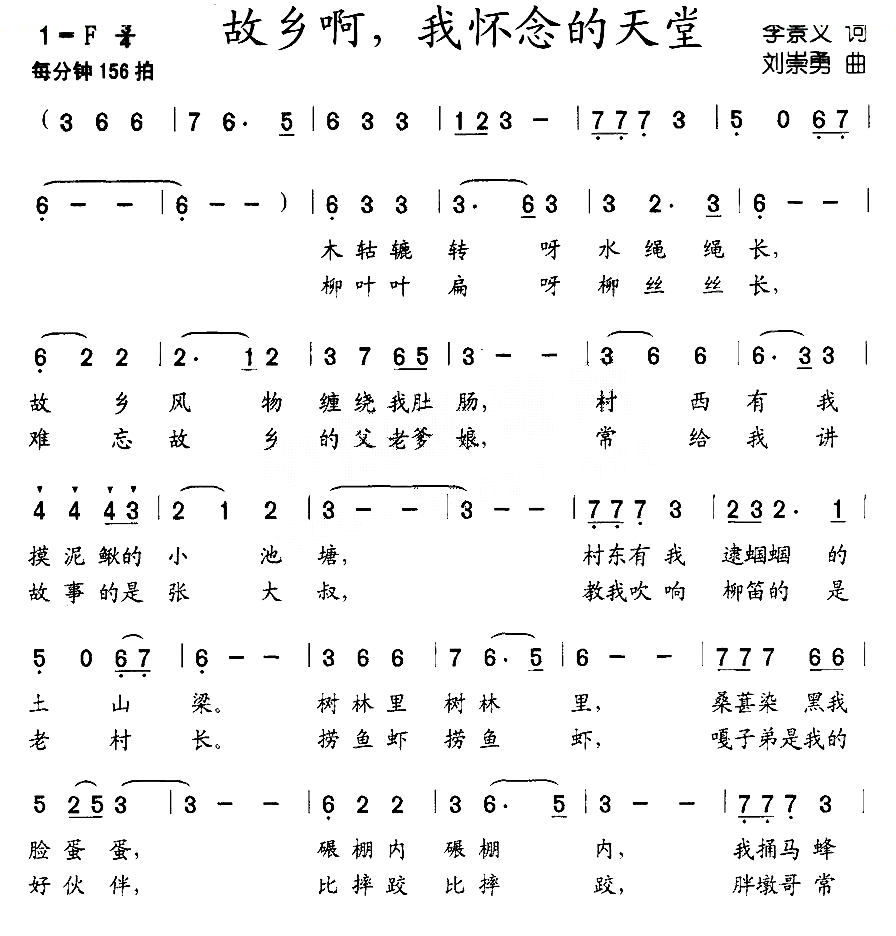 故乡啊，我怀念的天堂
1=F
李景义 词
每分钟156拍
刘崇勇 曲
(3 6 6 | 7 6· 5 | 6 3 3 | 1 2 3 - | 7 7 7 3 | 5 0 6 7 |
6 - - | 6 - - ) | 6 3 3 | 3· 6 3 | 3 2· 3 | 6 - - |
木轱辘转呀水绳绳长,
柳叶叶扁呀柳丝丝长,
6 2 2 | 2· 1 2 | 3 7 6 5 | 3 - - | 3 6 6 | 6· 3 3 |
故乡风物缠绕我肚肠, 村西有我
难忘故乡的父老爹娘, 常给我讲
4 4 4 3 | 2 1 2 | 3 - - | 3 - - | 7 7 7 3 | 2 3 2· 1 |
摸泥鳅的小池塘, 村东有我逮蝈蝈的
故事的是张大叔, 教我吹响柳笛的是
5 0 6 7 | 6 - - | 3 6 6 | 7 6· 5 | 6 - - | 7 7 7 6 6 |
土山梁。树林里树林里, 桑葚染黑我
老村长。捞鱼虾捞鱼虾, 嘎子弟是我的
5 2 5 3 | 3 - - | 6 2 2 | 3 6· 5 | 3 - - | 7 7 7 3 |
脸蛋蛋, 碾棚内碾棚内, 我捅马蜂
好伙伴, 比摔跤比摔跤, 胖墩哥常